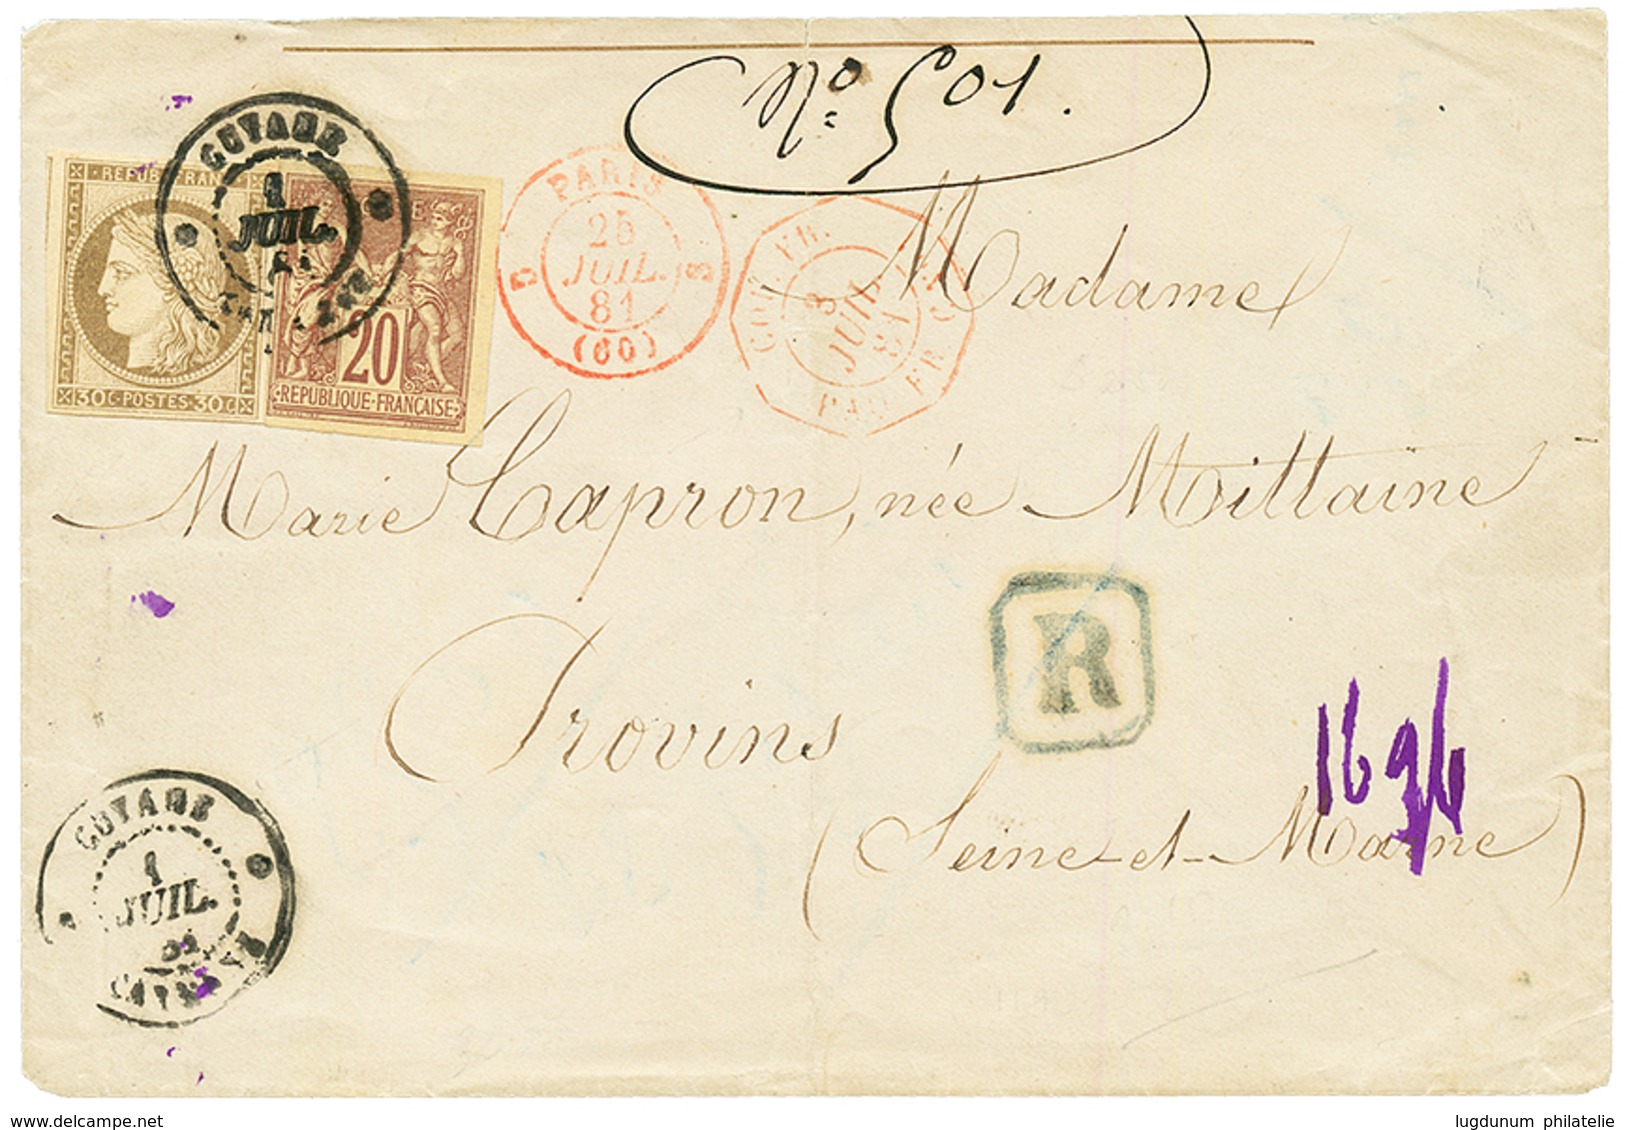 No 501.
GUYANE
1
JUIL.
81
REPUB. FRANC
30C·POSTES·30C
20
REPUBLIQUE·FRANÇAISE
PARIS
25
JUIL.
81
(60)
COL. FR.
3
JUIL
81
PAQ. FR.
Madame
Marie Capron, née Mittaine
R
Provins
1694
(Seine-et-Marne)
GUYANE
1
JUIL.
81
CAYENNE
www.delcampe.net
lugdunum philatelie